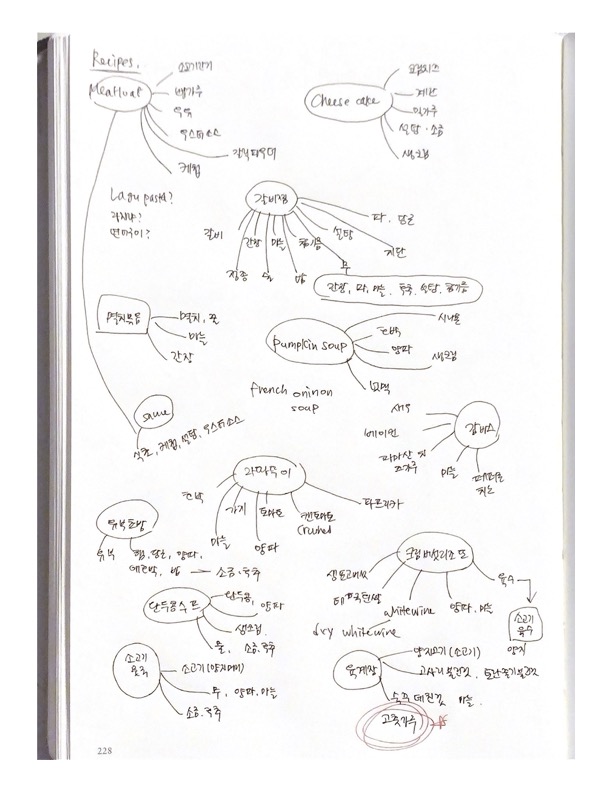 Recipes.
Meatloaf
소고기간거
빵가루
우유
우스터소스
갈릭파우더
케찹
Cheese cake
크림치즈
계란
밀가루
설탕·소금
생크림
Lagu pasta?
라자냐?
갈비찜
갈비
간장
마늘
참기름
설탕
파, 당근
지단
무
정종
물
밤
간장, 파, 마늘, 후추, 설탕, 참기름
멸치볶음
멸치, 꿀
마늘
간장
pumpkin soup
시나몬
단호박
양파
생크림
french oninon
soup
sauce
식초, 케찹, 설탕, 우스터소스
감바스
새우
베이컨
마늘
페퍼론
치노
라따뚜이
호박
가지
토마토
캔토마토
Crushed
파프리카
마늘
양파
유부초밥
유부
햄, 당근, 양파,
애호박, 밥 → 소금·후추
크림버섯리조또
생표고버섯
whitewine
dry whitewine
양파, 마늘
육수
소고기
육수
양지
완두콩수프
완두콩,
양파
생크림
물, 소금·후추
소고기
뭇국
소고기(양지머리)
무, 양파, 마늘
소금·후추
육개장
양지고기(소고기)
고사리불린것, 토란줄기불린것
숙주데친것, 마늘
고춧가루
228